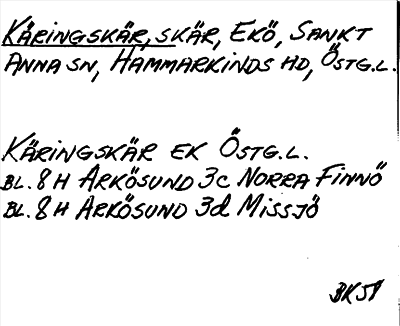 KÄRINGSKÄR, SKÄR, EKÖ, SANKT
ANNA SN, HAMMARKINDS HD, ÖSTG.L.
KÄRINGSKÄR EK ÖSTG.L.
BL. 8 H ARKÖSUND 3c NORRA FINNÖ
BL. 8 H ARKÖSUND 3d MISSJÖ